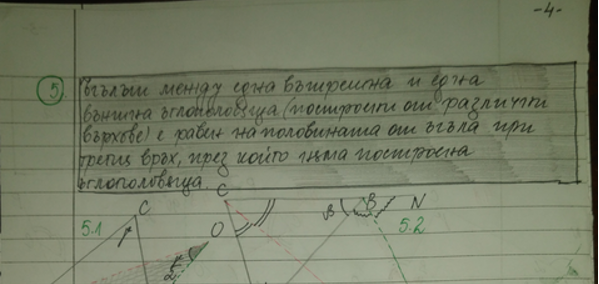 -4-
5. Ъгълът между една вътрешна и една
външна ъглополовяща (построени от различни
върхове) е равен на половината от ъгъла при
третия връх, през който няма построена
ъглополовяща.
C C B B N
5.1 O 5.2
γ